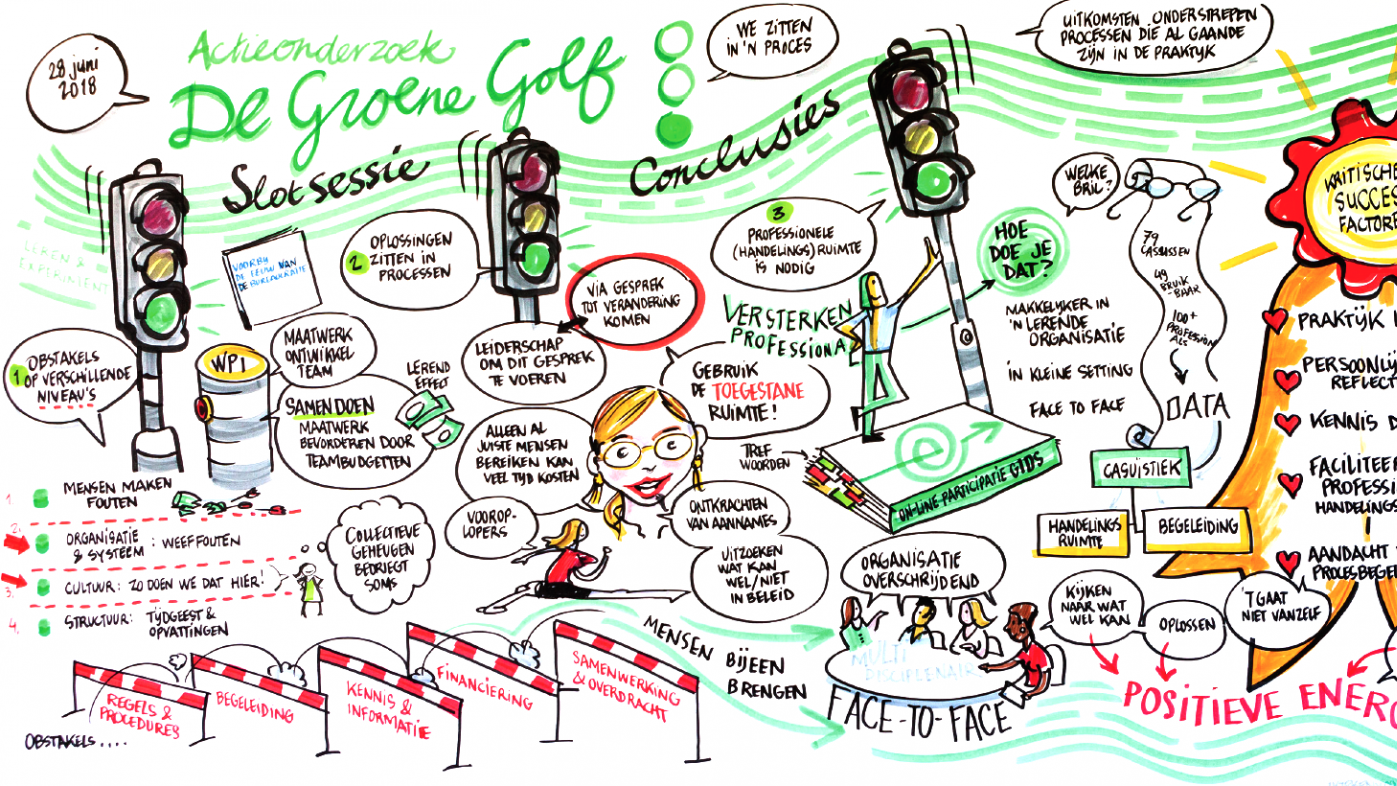 28 juni
2018
Actieonderzoek
De Groene Golf
Slotsessie
Conclusies
WE ZITTEN
IN 'N PROCES
UITKOMSTEN ONDERSTREPEN
PROCESSEN DIE AL GAANDE
ZIJN IN DE PRAKTIJK
LEREN &
EXPERIMENT
VOORBIJ
DE EEUW VAN
DE BUREAUCRATIE
1 OBSTAKELS
OP VERSCHILLENDE
NIVEAU'S
WPI
MAATWERK
ONTWIKKEL
TEAM
SAMEN DOEN
MAATWERK
BEVORDEREN DOOR
TEAMBUDGETTEN
LEREND
EFFECT
2 OPLOSSINGEN
ZITTEN IN
PROCESSEN
VIA GESPREK
TOT VERANDERING
KOMEN
LEIDERSCHAP
OM DIT GESPREK
TE VOEREN
ALLEEN AL
JUISTE MENSEN
BEREIKEN KAN
VEEL TIJD KOSTEN
VOOROP-
LOPERS
GEBRUIK
DE TOEGESTANE
RUIMTE!
ONTKRACHTEN
VAN AANNAMES
UITZOEKEN
WAT KAN
WEL/NIET
IN BELEID
3
PROFESSIONELE
(HANDELINGS) RUIMTE
IS NODIG
VERSTERKEN
PROFESSIONA
HOE
DOE JE
DAT?
MAKKELIJKER IN
'N LERENDE
ORGANISATIE
IN KLEINE SETTING
FACE TO FACE
TREF
WOORDEN
ON-LINE PARTICIPATIE GIDS
WELKE
BRIL?
79
CASUSSEN
49
BRUIK-
BAAR
100+
PROFESSION
ALS
DATA
CASUÏSTIEK
HANDELINGS
RUIMTE
BEGELEIDING
KRITISCHE
SUCCES
FACTORE
PRAKTIJK I
PERSOONLIJ
REFLECT
KENNIS D
FACILITEER
PROFESSI
HANDELINGS
AANDACHT
PROCESBEGE
1. MENSEN MAKEN
FOUTEN
2. ORGANISATIE
& SYSTEEM : WEEFFOUTEN
3. CULTUUR: ZO DOEN WE DAT HIER!
4. STRUCTUUR: TIJDGEEST &
OPVATTINGEN
COLLECTIEVE
GEHEUGEN
BEDRIEGT
SOMS
REGELS &
PROCEDURES
BEGELEIDING
KENNIS &
INFORMATIE
FINANCIERING
SAMENWERKING
& OVERDRACHT
OBSTAKELS....
MENSEN BIJEEN
BRENGEN
ORGANISATIE
OVERSCHRIJDEND
MULTI
DISCIPLENAIR
FACE-TO-FACE
KIJKEN
NAAR WAT
WEL KAN
OPLOSSEN
'T GAAT
NIET VANZELF
POSITIEVE ENERG